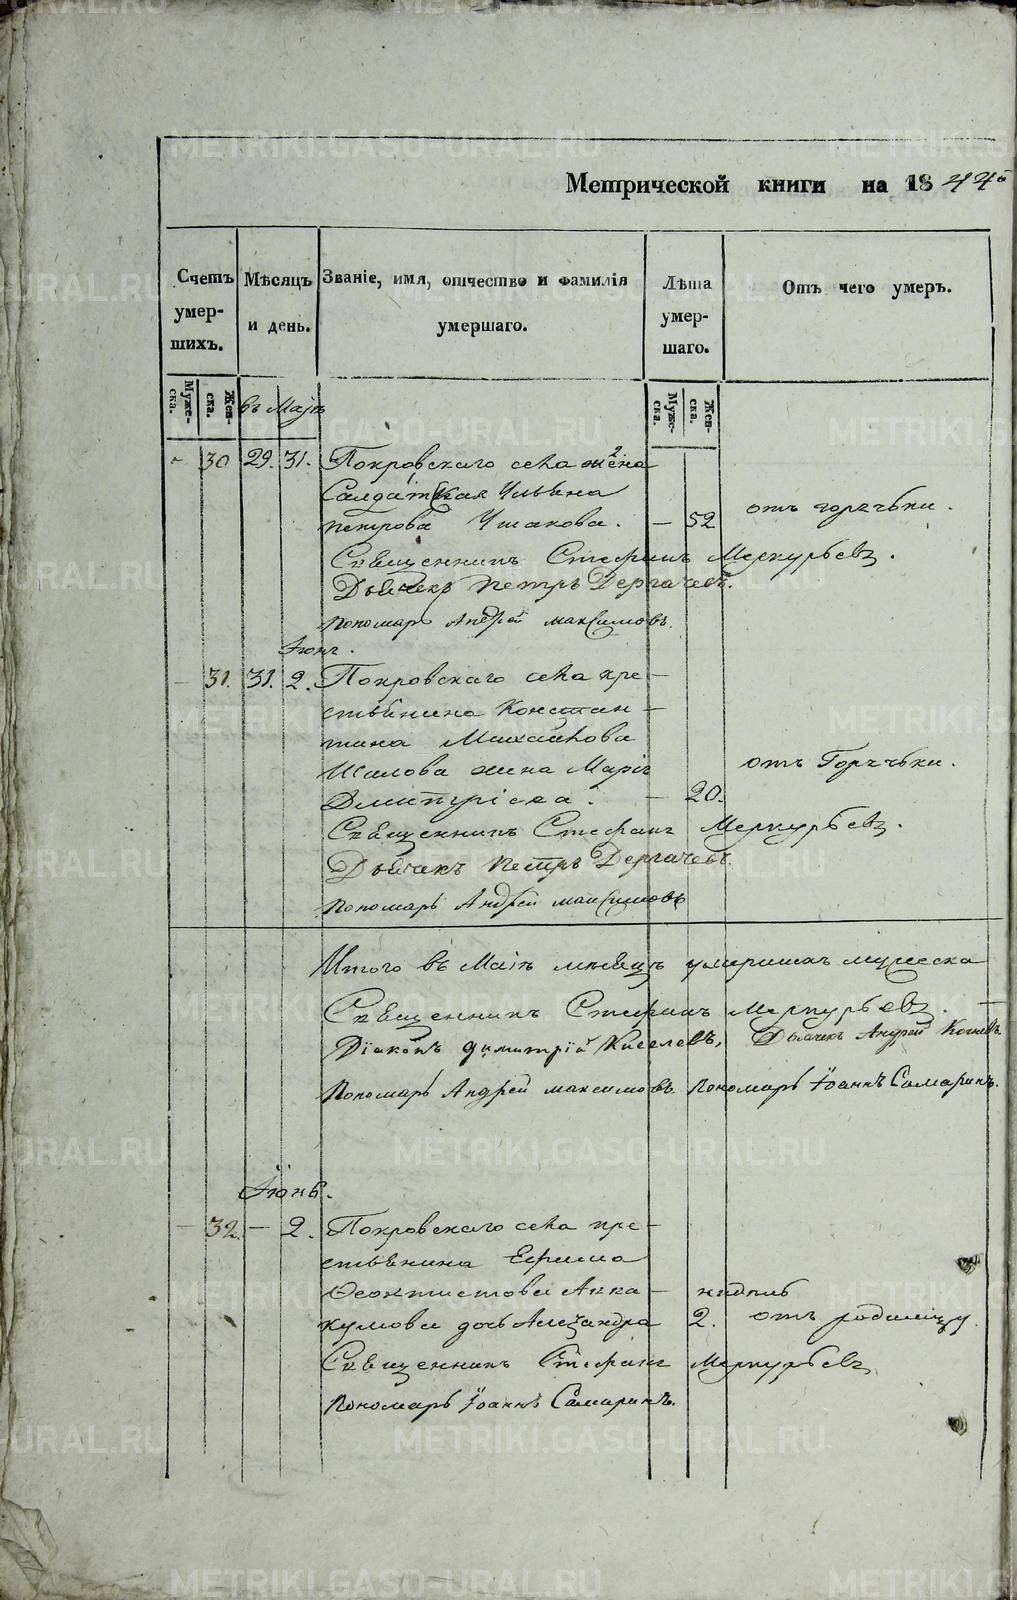 Метрической книги на 1844
Счетъ умер-шихъ.
Мѣсяцъ и день.
Званіе, имя, отчество и фамилія умершаго.
Лѣта умер-шаго.
Отъ чего умеръ.
Муже-ска.
Жен-ска.
въ Маѣ
Муже-ска.
Жен-ска.
- 30 29. 31. Покровскаго села жена
Салдатская Ульяна
Петрова Ушакова. — 52 отъ горячьки.
Священникъ Стефанъ Меркурьевъ.
Дьячекъ Петръ Дергачевъ.
Пономарь Андрей Максимовъ.
Іюня.
- 31. 31. 2. Покровскаго села кре-
стьянина Констан-
тина Михайлова
Шалова жена Марія
Дмитріева. — 20. отъ Горячьки.
Священникъ Стефанъ Меркурьевъ.
Дьячекъ Петръ Дергачевъ.
Пономарь Андрей Максимовъ
Итого въ Маіѣ месяцѣ умершихъ мужеска
Священникъ Стефанъ Меркурьевъ. —
Діаконъ Димитрій Киселевъ, Дьячекъ Андрей
Пономарь Андрей Максимовъ. Пономарь Іоаннъ Самаринъ.
Іюнь.
- 32. — 2. Покровскаго села кре-
стьянина Ефима
Феоктистова Анна- — нидель
кумова дочь Александра 2. отъ родимцу.
Священникъ Стефанъ Меркурьевъ
Пономарь Іоаннъ Самаринъ.
METRIKI.GASO-URAL.RU